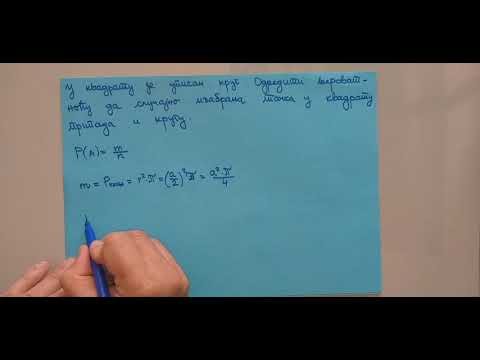 У квадрату је уписан круг Одредити вероват-
ноћу да случајно изабрана тачка у квадрату
припада и кругу.
P(A) = m/n
m = Pкруга = r²·π = (a/2)²π = a²·π/4